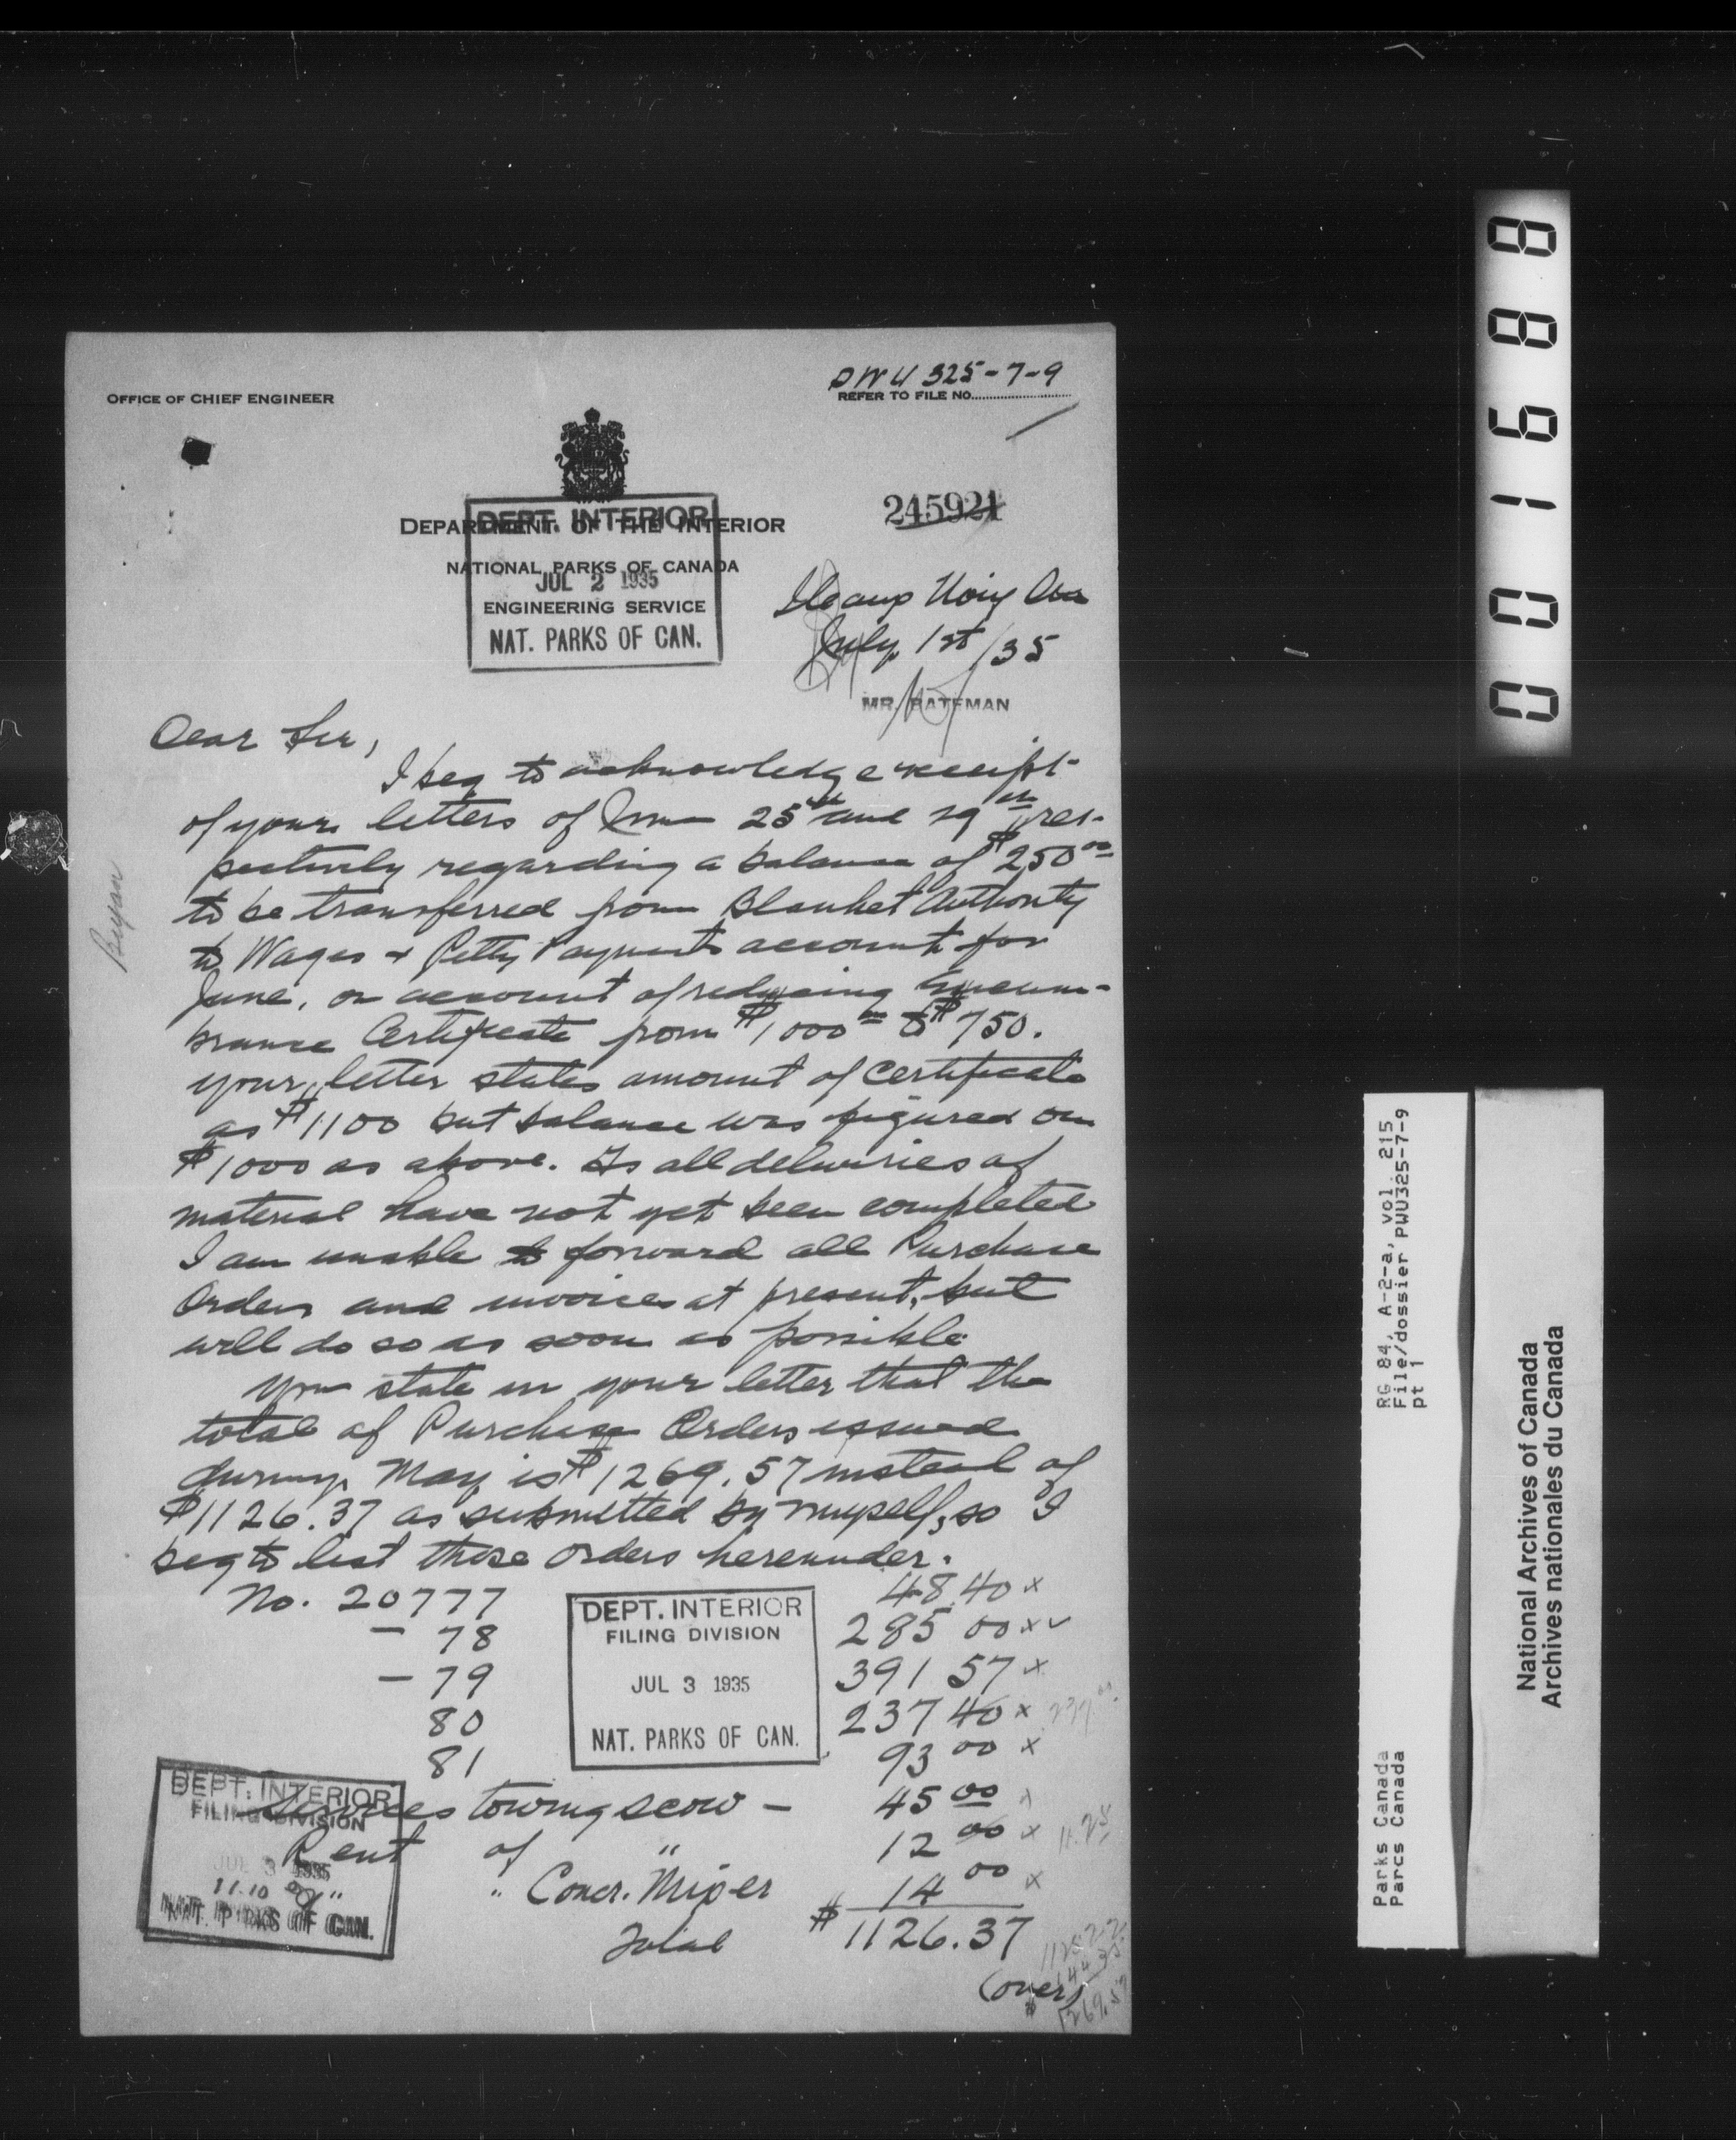 OFFICE OF CHIEF ENGINEER
PWU 325-7-9
REFER TO FILE NO.
245921
DEPARTMENT OF THE INTERIOR
NATIONAL PARKS OF CANADA
ENGINEERING SERVICE
DEPT. INTERIOR
JUL 2 1935
NAT. PARKS OF CAN.
July 1st/35
MR. BATEMAN
Dear Sir,
I beg to acknowledge receipt
of your letters of June 25th and 29th res-
pectively regarding a balance of $250.00
to be transferred from Blanket Authority
to Wages + Petty Payments account for
June, on account of reducing Encum-
brance Certificate from $1000.00 to $750.
your letter states amount of Certificate
as $1100 but balance was figured on
$1000 as above. As all deliveries of
material have not yet been completed
I am unable to forward all Purchase
Orders and invoices at present, but
will do so as soon as possible.
You state in your letter that the
total of Purchase Orders issued
during May is $1269.57 instead of
$1126.37 as submitted by myself, so I
beg to list those orders hereunder.
No. 20777 48.40 x
- 78 285 00 x ✓
- 79 391 57 x
80 237 40 x
81 93 00 x
Services towing scow - 45 00
Rent of " 12 00 x 11.25
" " Concr. Mixer 14 00 x
Total $ 1126.37
(over)
1269.57
Bryan
DEPT. INTERIOR
FILING DIVISION
JUL 3 1935
NAT. PARKS OF CAN.
DEPT. INTERIOR
FILING DIVISION
JUL 3 1935
11.10
NAT. PARKS OF CAN.
001688
RG 84, A-2-a, vol. 215,
File/dossier PWU325-7-9
pt 1
Parks Canada
Parcs Canada
National Archives of Canada
Archives nationales du Canada